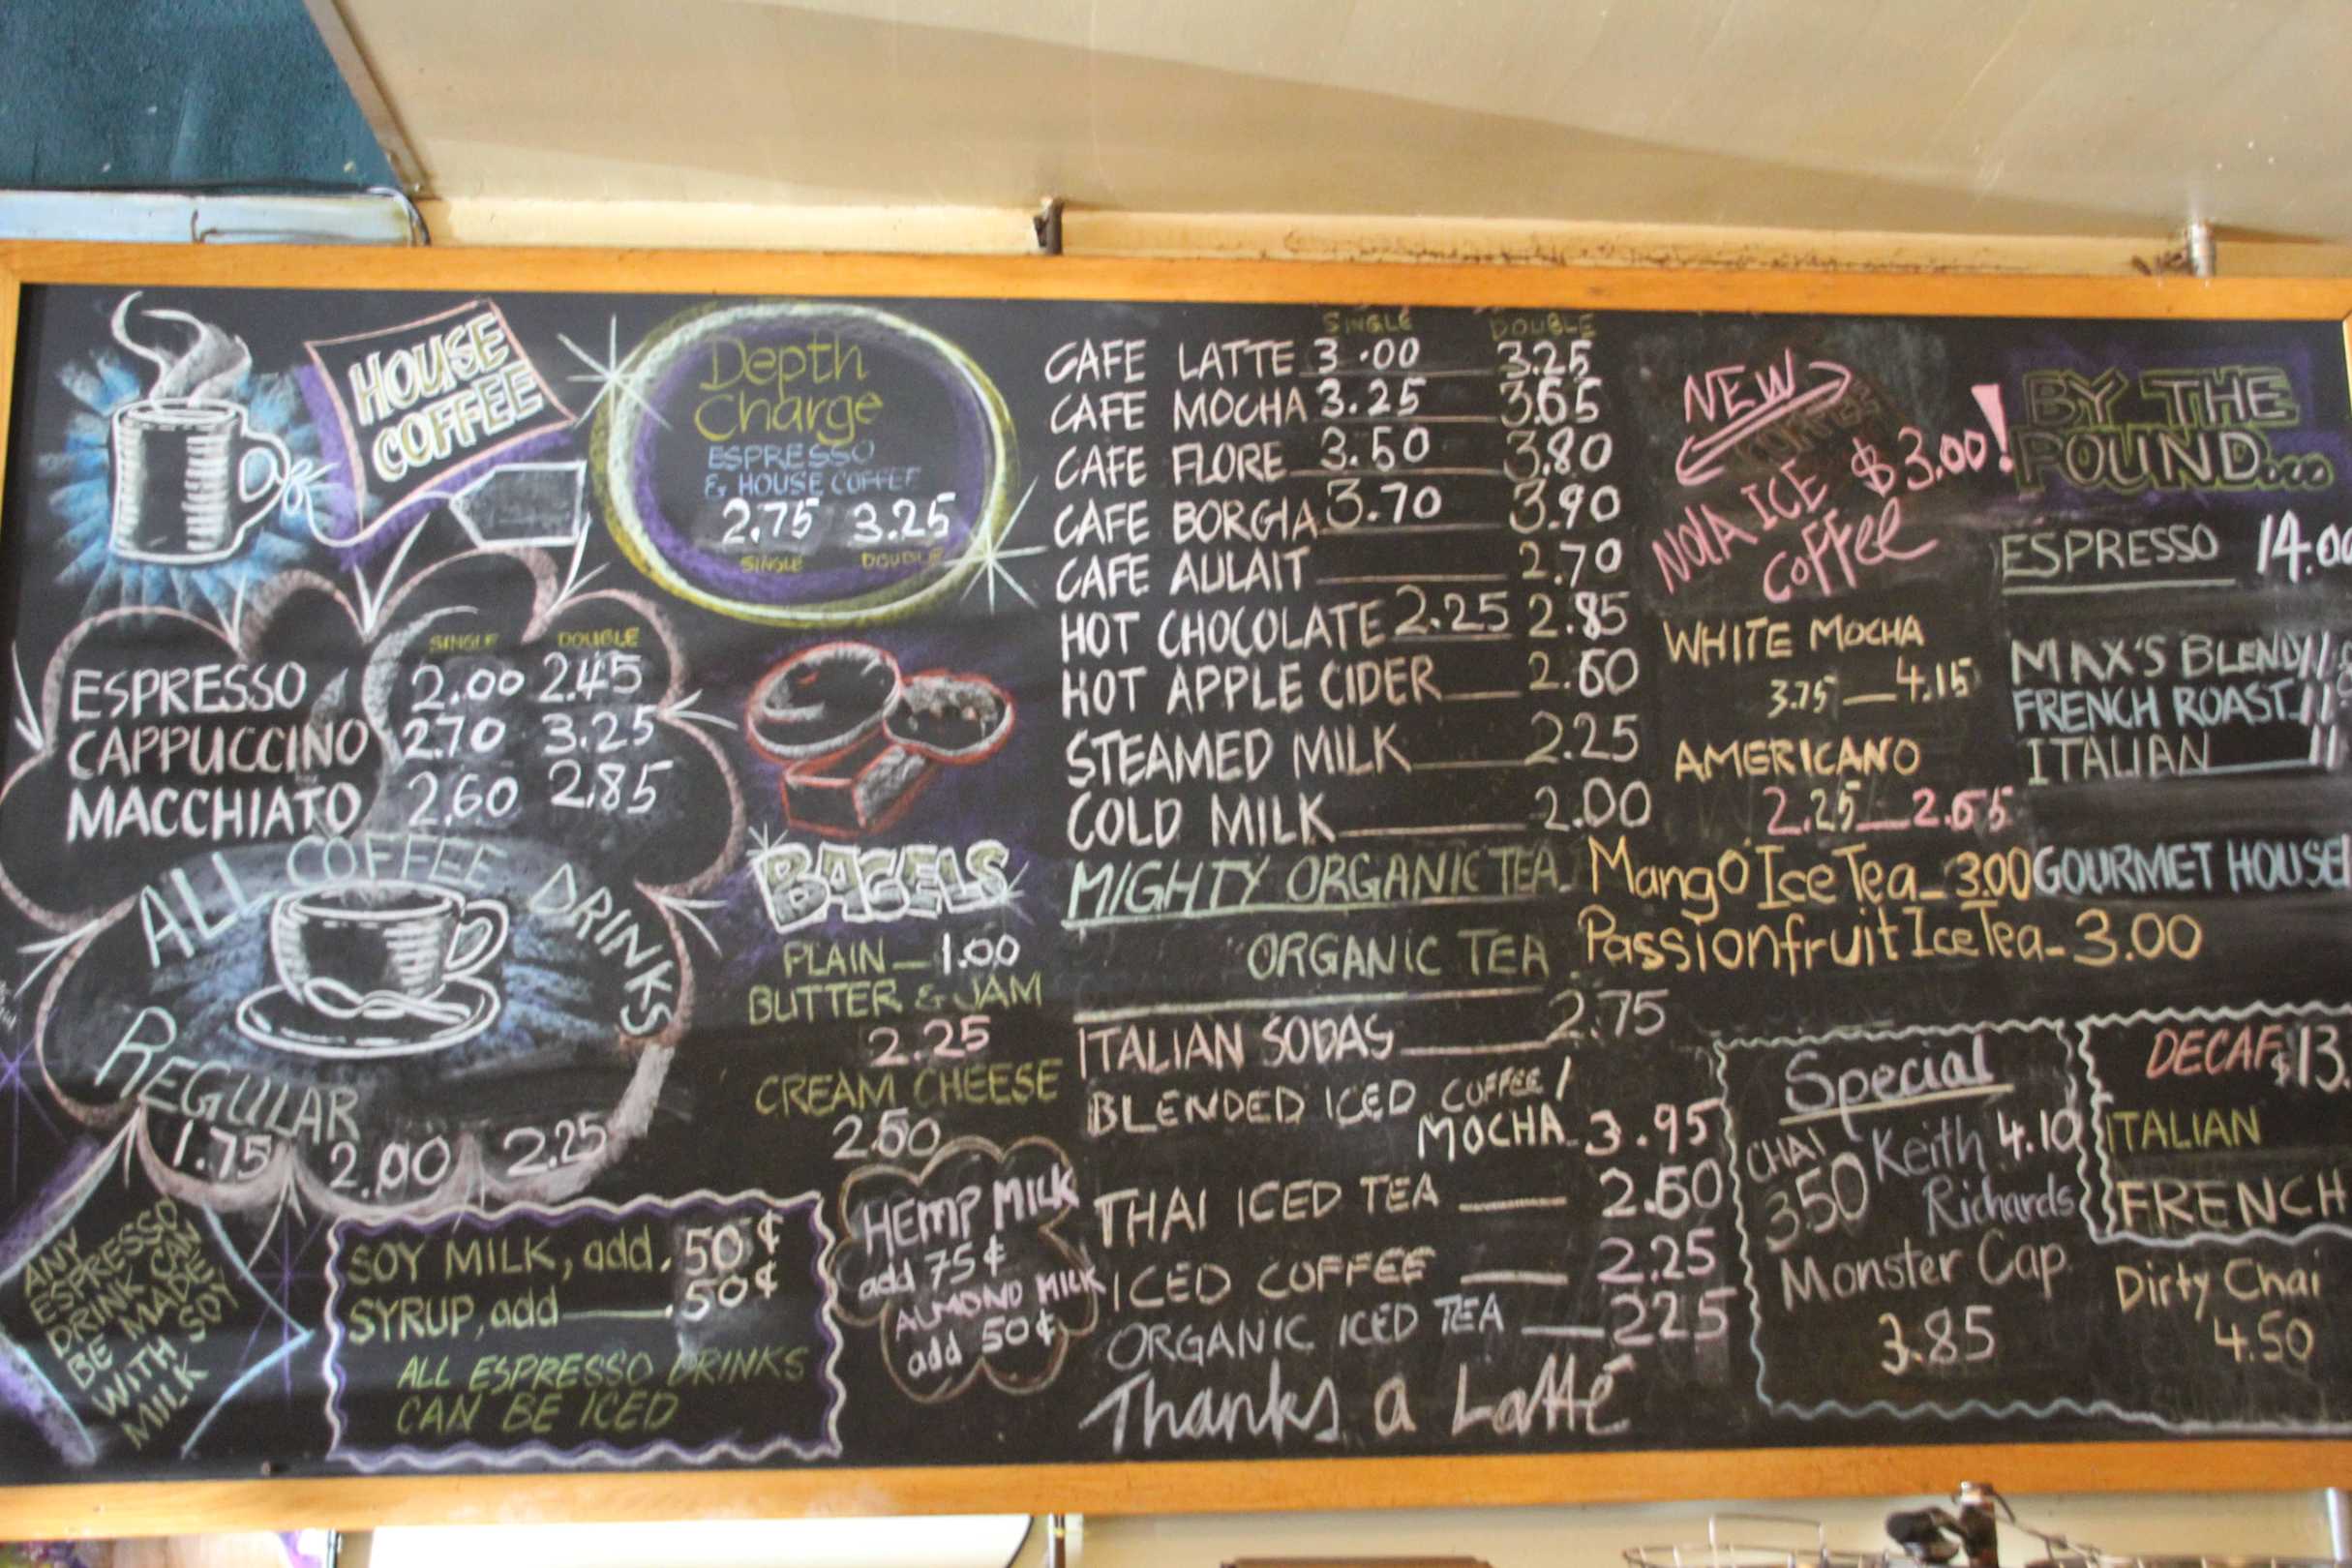 HOUSE
COFFEE
Depth
Charge
ESPRESSO
& HOUSE COFFEE
2.75 3.25
SINGLE DOUBLE
SINGLE DOUBLE
ESPRESSO 2.00 2.45
CAPPUCCINO 2.70 3.25
MACCHIATO 2.60 2.85
ALL COFFEE DRINKS
REGULAR
1.75 2.00 2.25
ANY
ESPRESSO
DRINK CAN
BE MADE
WITH SOY
MILK
SOY MILK, add .50¢
SYRUP, add .50¢
ALL ESPRESSO DRINKS
CAN BE ICED
BAGELS
PLAIN — 1.00
BUTTER & JAM
2.25
CREAM CHEESE
2.50
HEMP MILK
add 75¢
ALMOND MILK
add 50¢
SINGLE DOUBLE
CAFE LATTE 3.00 3.25
CAFE MOCHA 3.25 3.65
CAFE FLORE 3.50 3.80
CAFE BORGIA 3.70 3.90
CAFE AULAIT 2.70
HOT CHOCOLATE 2.25 2.85
HOT APPLE CIDER 2.60
STEAMED MILK 2.25
COLD MILK 2.00
MIGHTY ORGANIC TEA
ORGANIC TEA
ITALIAN SODAS 2.75
BLENDED ICED COFFEE/
MOCHA 3.95
THAI ICED TEA 2.60
ICED COFFEE 2.25
ORGANIC ICED TEA 225
Thanks a Latté
NEW
NOLA ICE $3.00!
Coffee
WHITE MOCHA
3.75 — 4.15
AMERICANO
2.25 — 2.65
Mango Ice Tea - 3.00
Passionfruit Ice Tea - 3.00
Special
CHAI
350
Keith 4.10
Richards
Monster Cap
3.85
BY THE
POUND....
ESPRESSO 14.00
MAX'S BLEND
FRENCH ROAST
ITALIAN
GOURMET HOUSE
DECAF $13.
ITALIAN
FRENCH
Dirty Chai
4.50